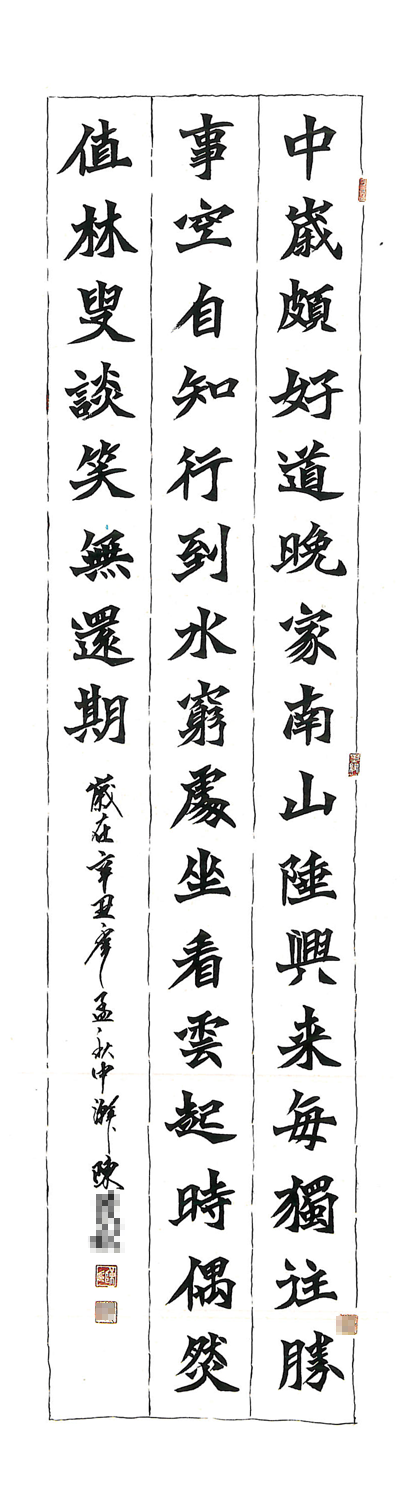 中歲頗好道晚家南山陲興来每獨往勝
事空自知行到水窮處坐看雲起時偶然
值林叟談笑無還期
歲在辛丑年孟秋中澣陳